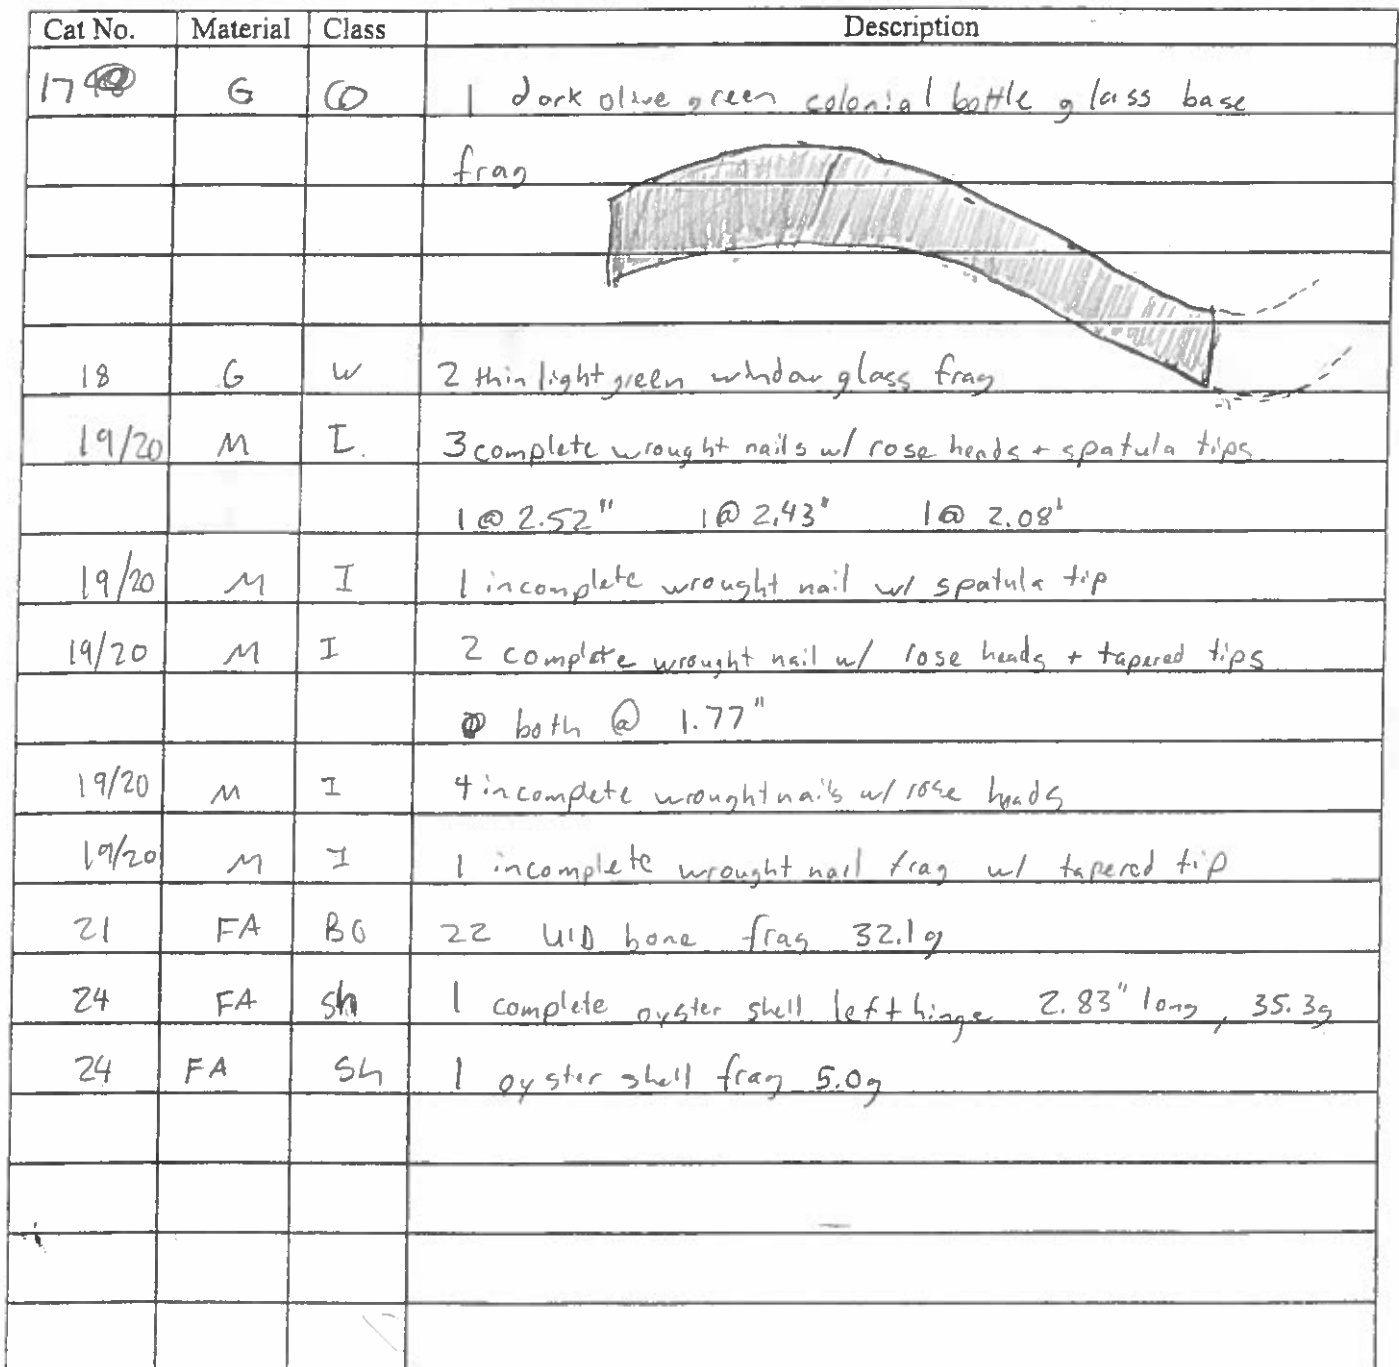 Cat No. Material Class Description
17 G CO 1 dark olive green colonial bottle glass base
frag
18 G W 2 thin light green window glass frag
19/20 M I. 3 complete wrought nails w/ rose heads + spatula tips
1 @ 2.52" 1 @ 2.43" 1 @ 2.08'
19/20 M I 1 incomplete wrought nail w/ spatula tip
19/20 M I 2 complete wrought nail w/ rose heads + tapered tips
both @ 1.77"
19/20 M I 4 incomplete wrought nails w/ rose heads
19/20 M I 1 incomplete wrought nail frag w/ tapered tip
21 FA BO 22 UID bone frag 32.1g
24 FA Sh 1 complete oyster shell left hinge 2.83" long, 35.3g
24 FA Sh 1 oyster shell frag 5.0g